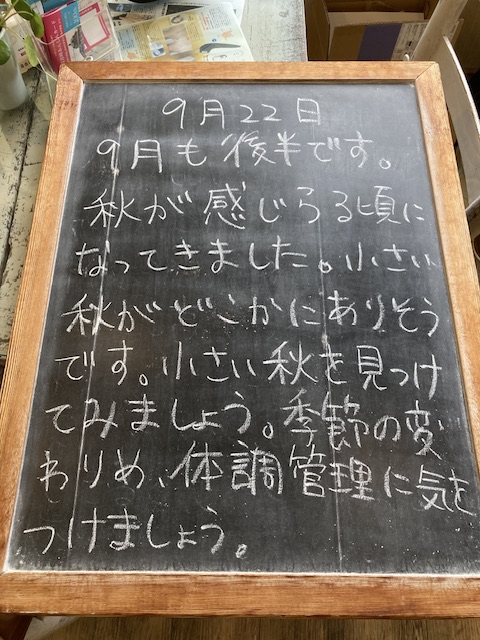 9月22日
9月も後半です。
秋が感じらる頃に
なってきました。小さい
秋がどこかにありそう
です。小さい秋を見つけ
てみましょう。季節の変
わりめ、体調管理に気を
つけましょう。